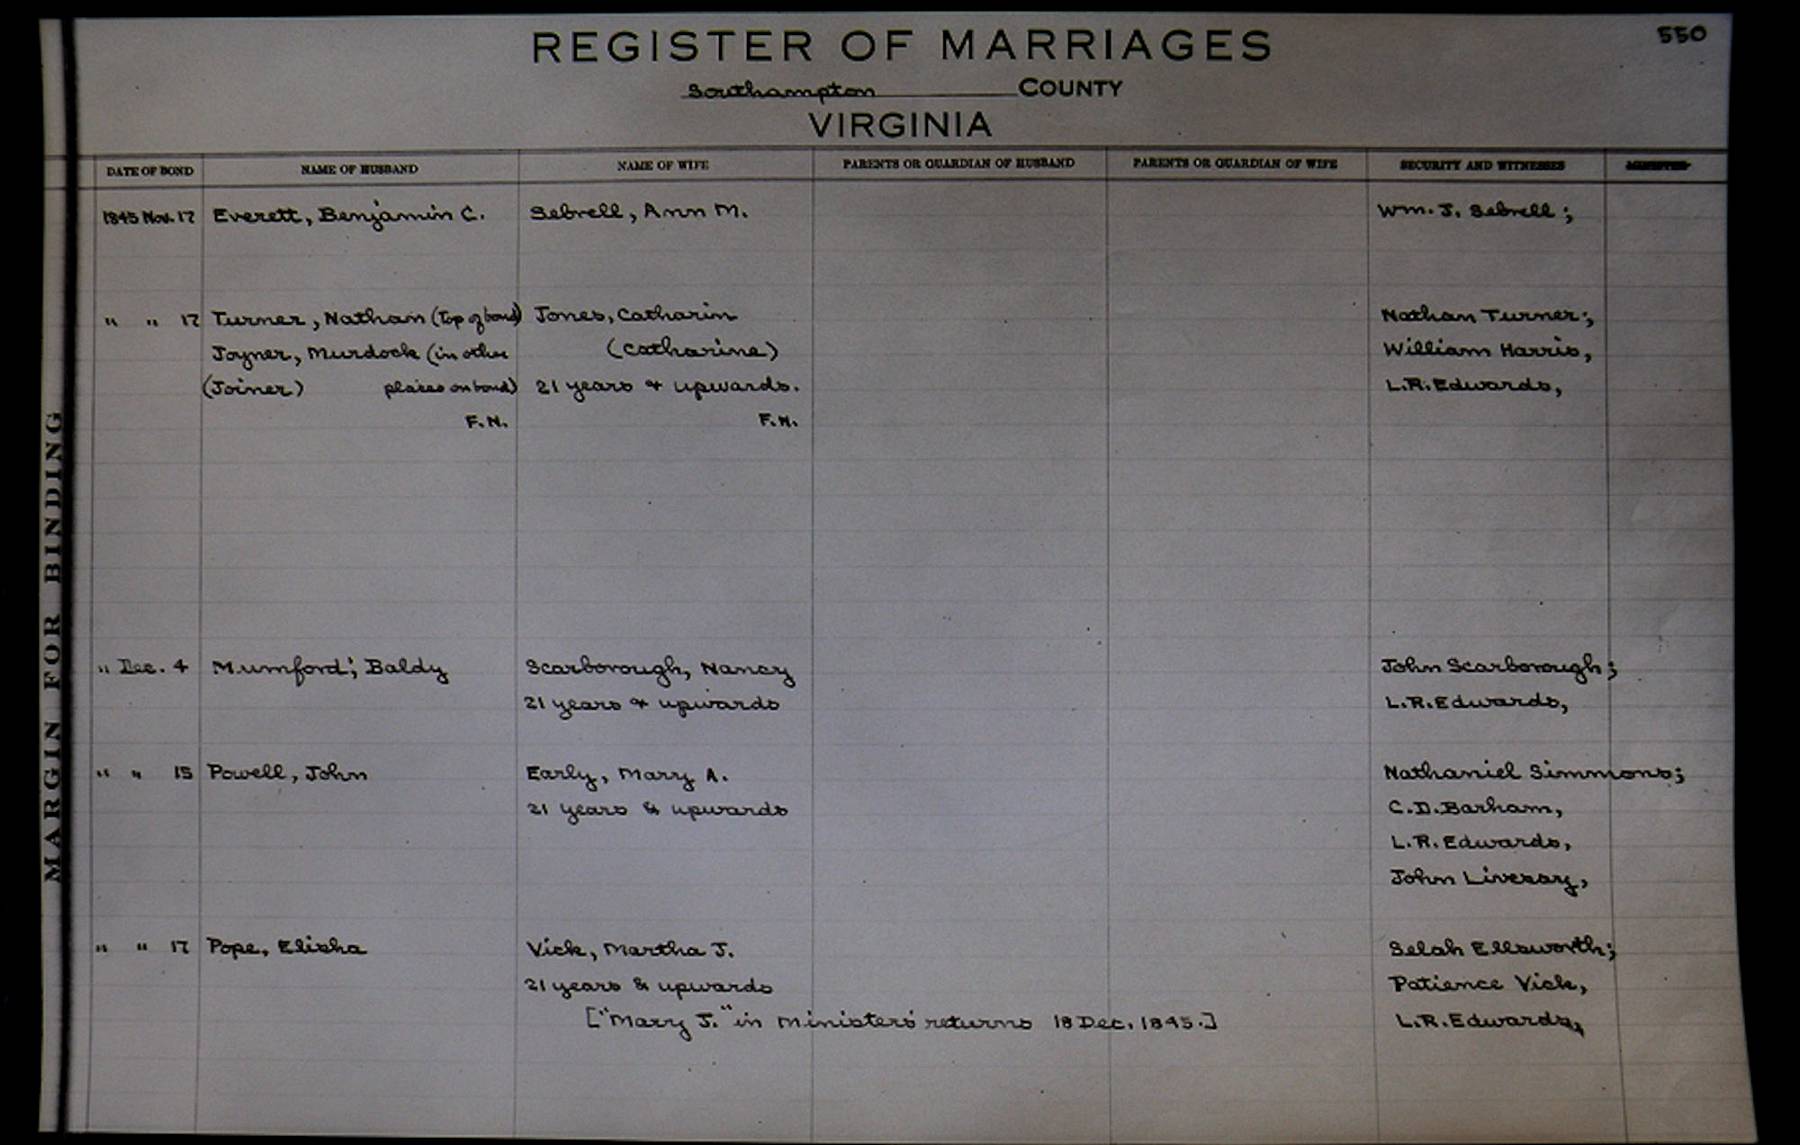 550
REGISTER OF MARRIAGES
Southampton COUNTY
VIRGINIA
MARGIN FOR BINDING
DATE OF BOND NAME OF HUSBAND NAME OF WIFE PARENTS OR GUARDIAN OF HUSBAND PARENTS OR GUARDIAN OF WIFE SECURITY AND WITNESSES
1845 Nov. 17 Everett, Benjamin C. Sebrell, Ann M. Wm. J. Sebrell;
" " 17 Turner, Nathan (Top of bond) Jones, Catharin Nathan Turner;
Joyner, Murdock (in other (Catharine) William Harris,
(Joiner) places on bond) 21 years & upwards. L.R. Edwards,
F.N. F.N.
" Dec. 4 Mumford; Baldy Scarborough, Nancy John Scarborough;
21 years & upwards L.R. Edwards,
" " 15 Powell, John Early, Mary A. Nathaniel Simmons;
21 years & upwards C.D. Barham,
L.R. Edwards,
John Livesay,
" " 17 Pope, Elisha Vick, Martha J. Selah Ellsworth;
21 years & upwards Patience Vick,
["Mary J." in Ministers' returns 18 Dec. 1845.] L.R. Edwards,